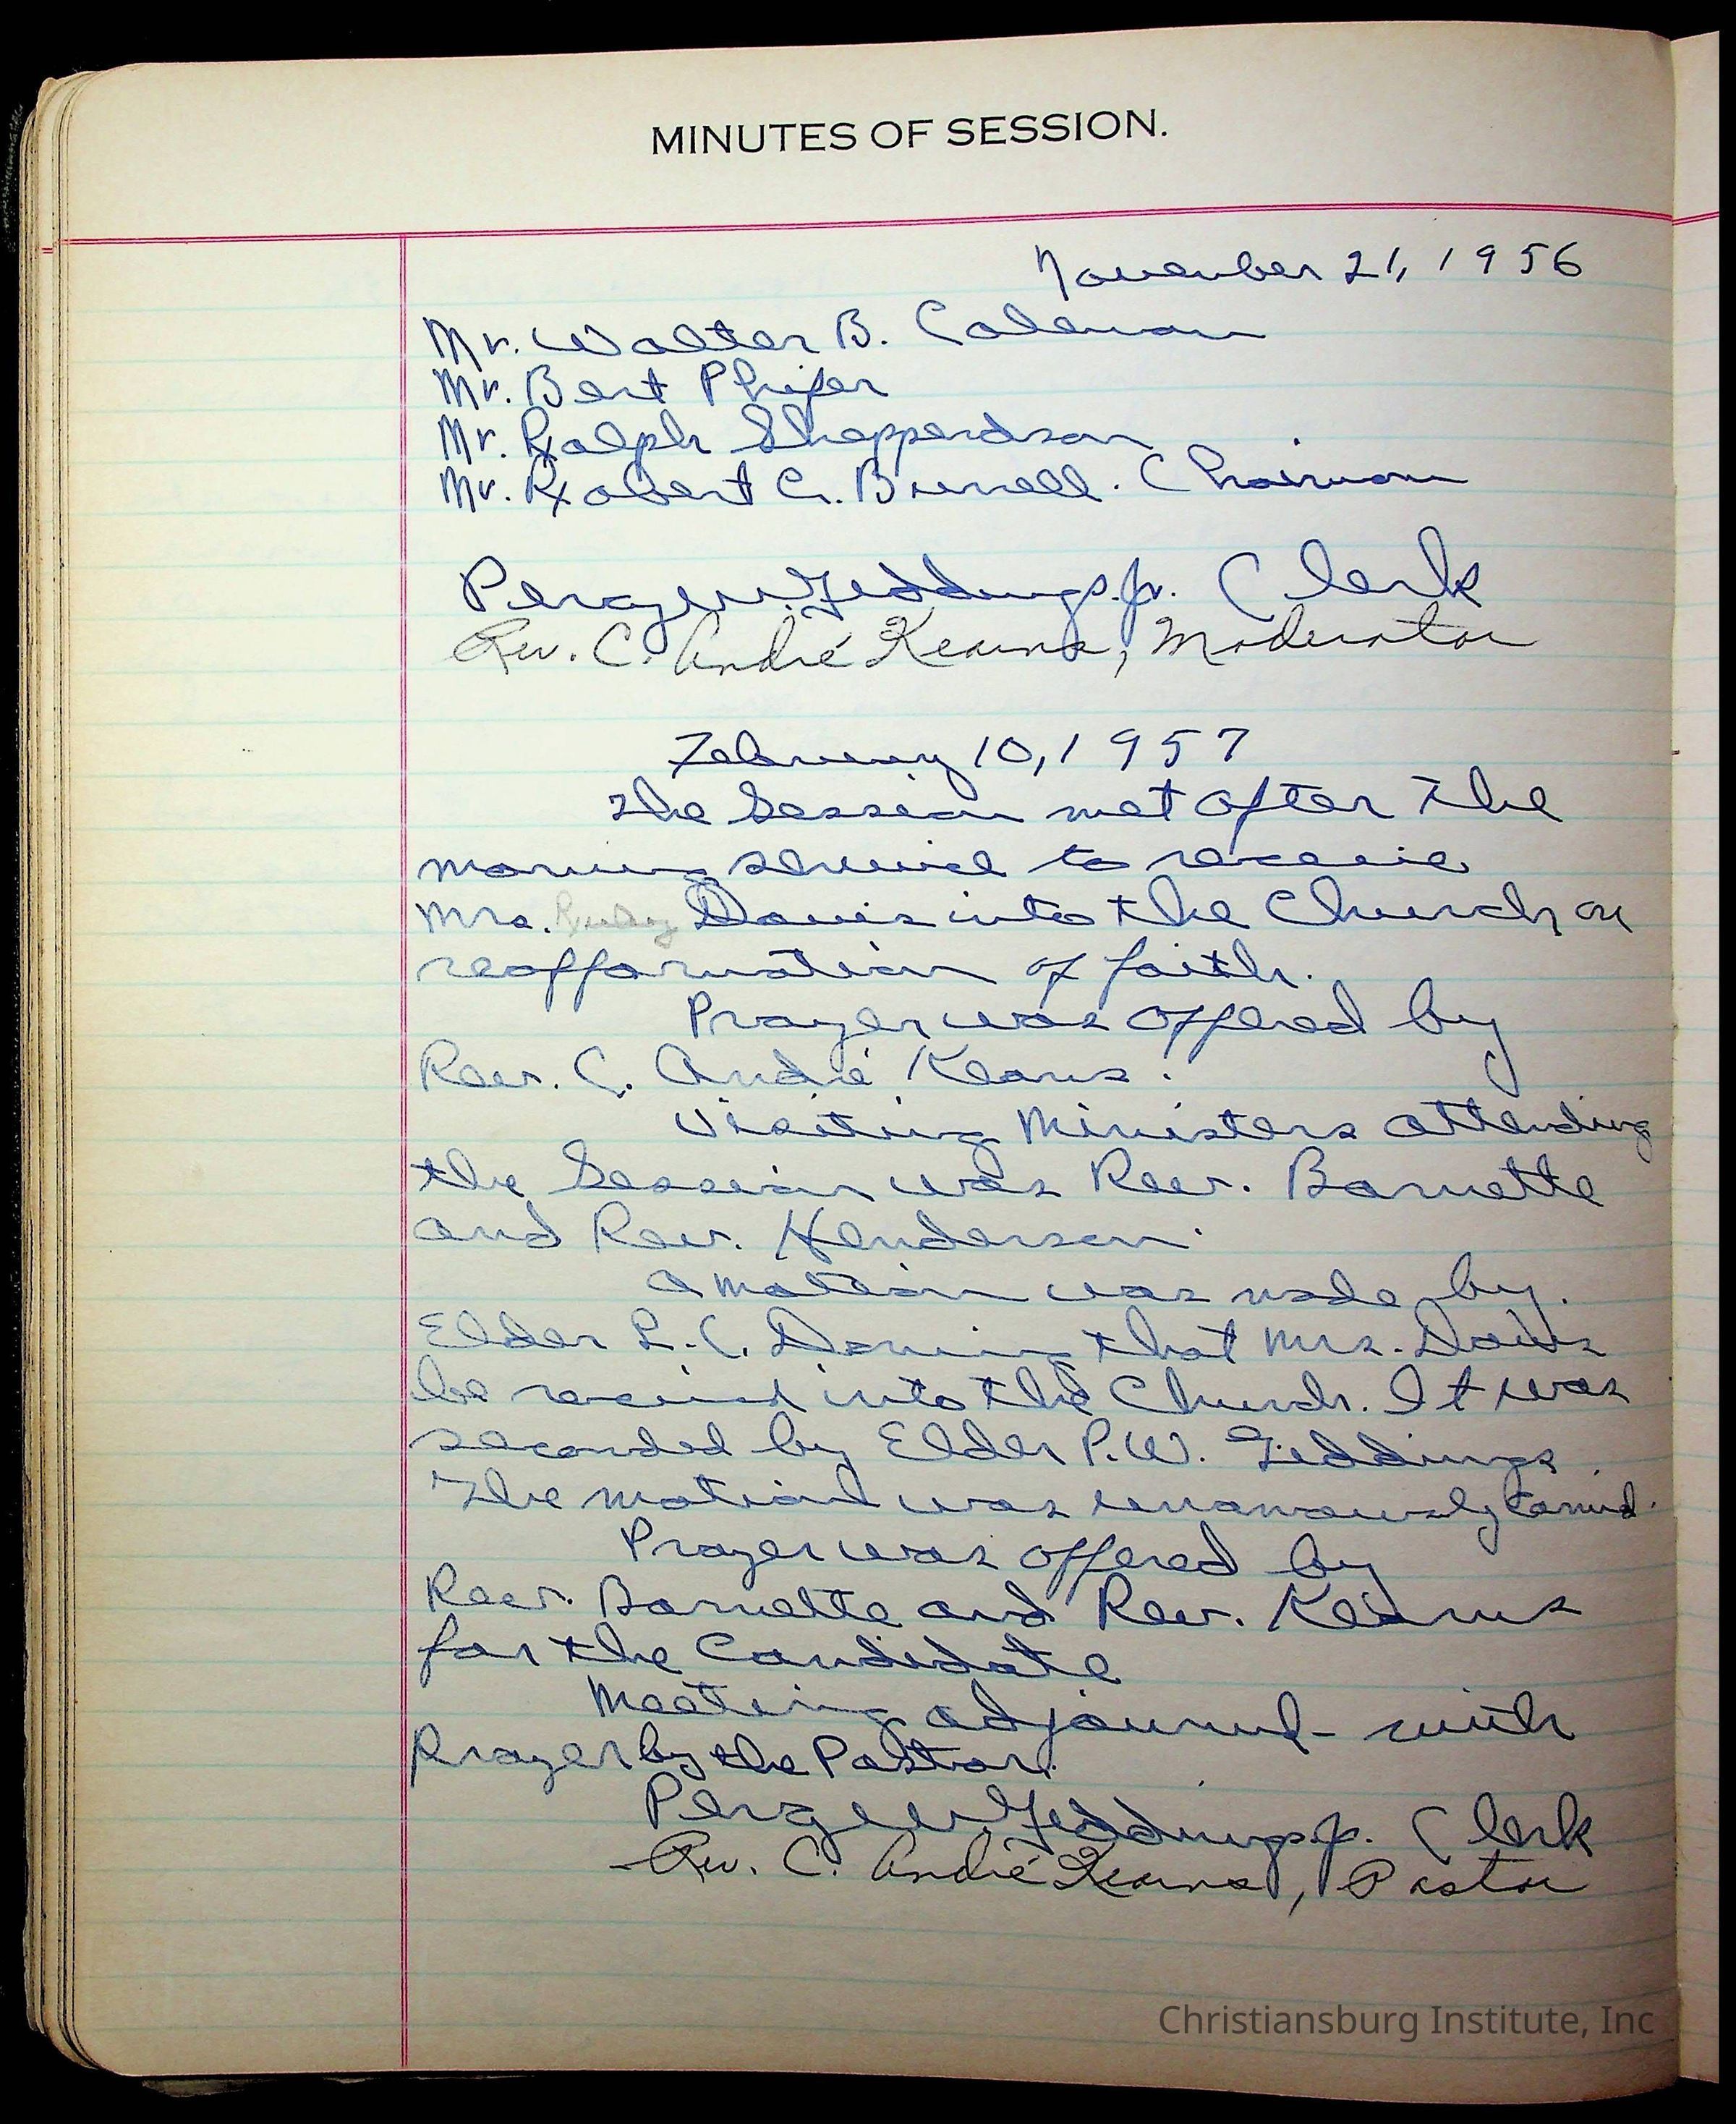 MINUTES OF SESSION.
November 21, 1956
Mr. Walter B. Coleman
Mr. Bert Phifer
Mr. Ralph Shepperdson
Mr. Robert G. Burrell. Chairman
W. Geddings. Jr. Clerk
Rev. C. André Kearns, Moderator
February 10, 1957
The Session met after the
morning service to receive
Mrs. Davis into the Church on
reafformation of faith.
Prayer was offered by
Rev. C. André Kearns.
Visiting Ministers attending
the Session was Rev. Barnette
and Rev. Henderson.
A motion was made by
Elder L.C. that Mrs. Davis
be received into the Church. It was
seconded by Elder P.W. Geddings
The motion was unanimously carried.
Prayer was offered by
Rev. Barnette and Rev. Kearns
for the Candidate
Meeting adjourned - with
Prayer by the Pastor.
W. Geddings Jr. Clerk
Rev. C. André Kearns, Pastor
Christiansburg Institute, Inc